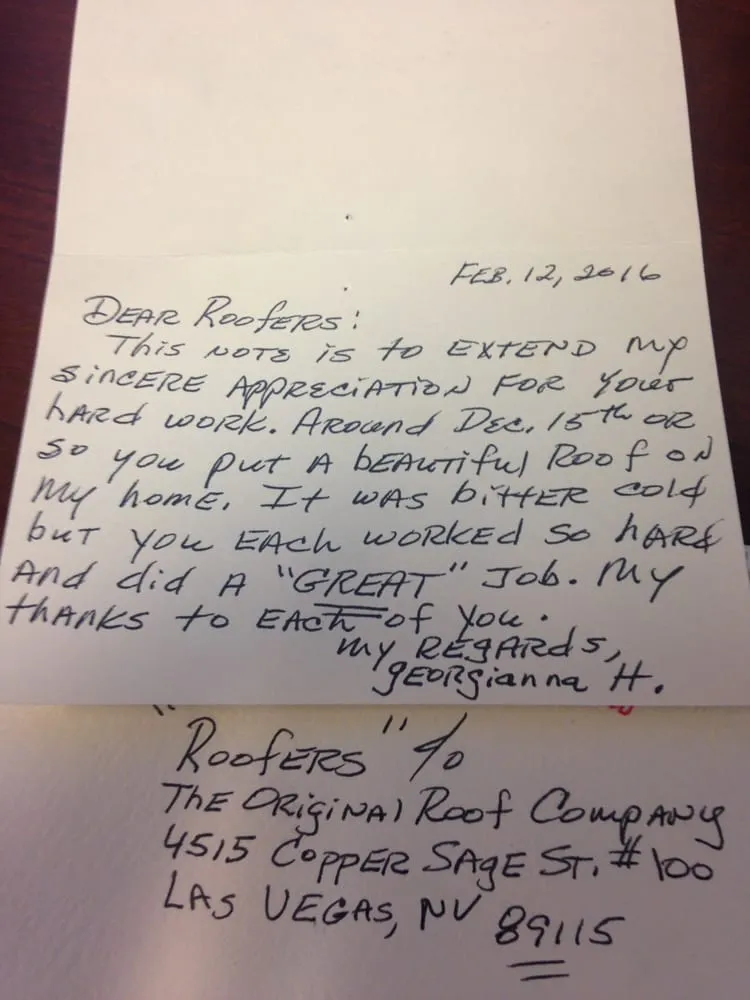 Feb. 12, 2016
Dear Roofers:
This note is to extend my
sincere appreciation for your
hard work. Around Dec. 15th or
so you put a beautiful Roof on
my home. It was bitter cold
but you each worked so hard
and did a "GREAT" Job. My
thanks to each of you.
My Regards,
Georgianna H.
"Roofers" c/o
The Original Roof Company
4515 Copper Sage St. #100
Las Vegas, NV 89115